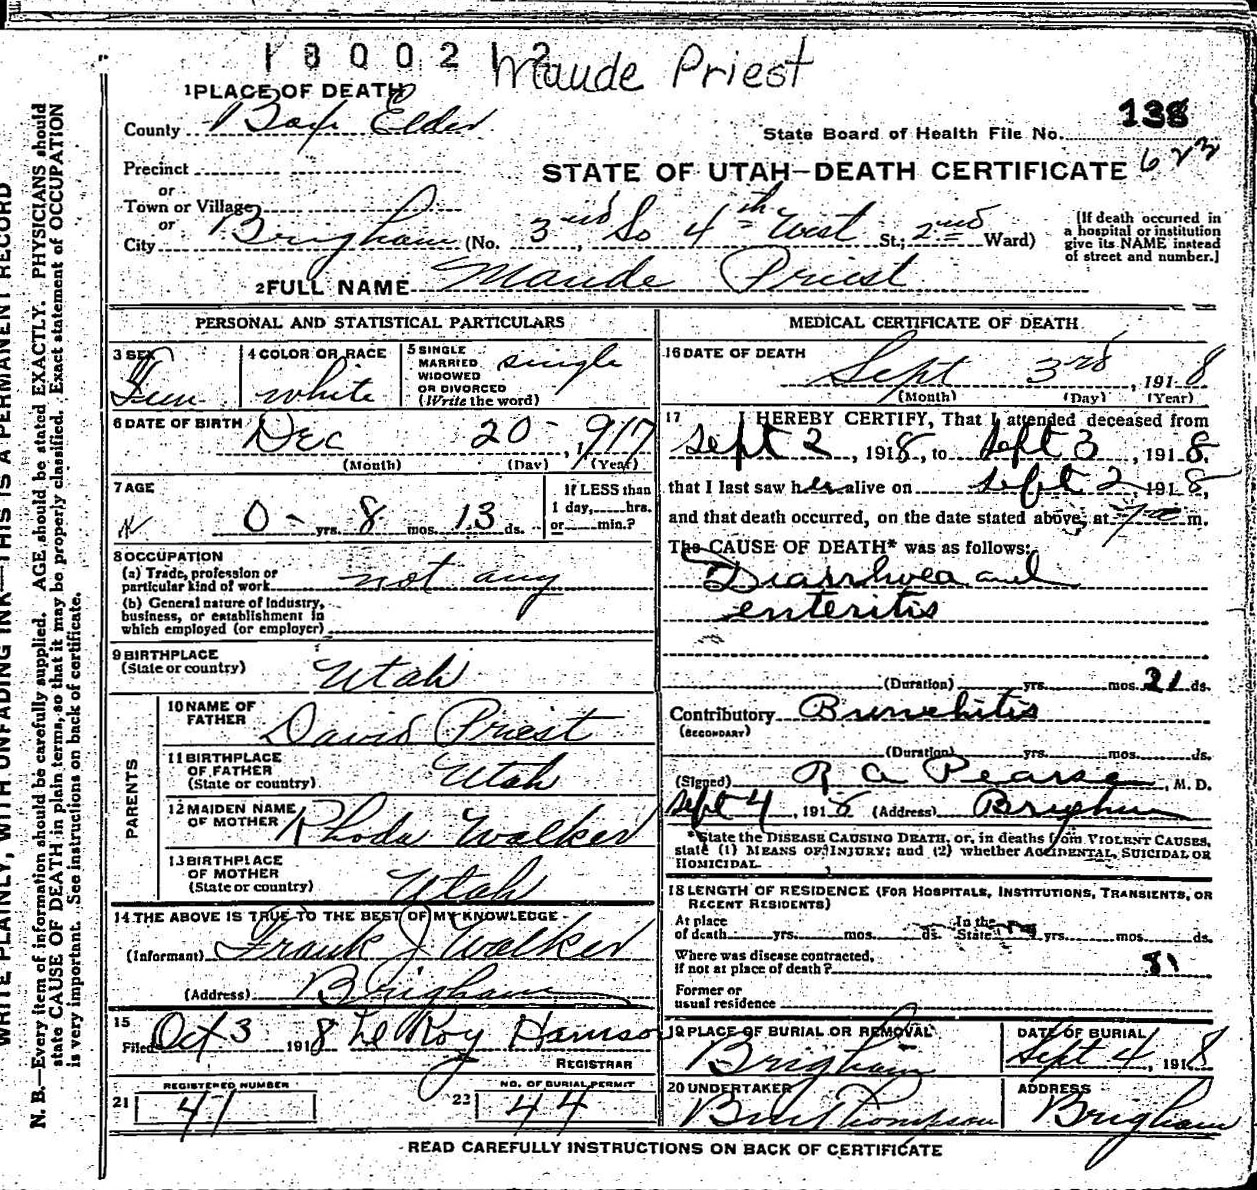 1800212 Maude Priest
1 PLACE OF DEATH
County Box Elder
138
State Board of Health File No.
Precinct
STATE OF UTAH—DEATH CERTIFICATE 622
or
Town or Village
or
City Brigham (No. 3rd So 4th West St.; 2nd Ward)
[If death occurred in
a hospital or institution
give its NAME instead
of street and number.]
2 FULL NAME Maude Priest
PERSONAL AND STATISTICAL PARTICULARS
3 SEX Fem
4 COLOR OR RACE white
5 SINGLE
MARRIED
WIDOWED
OR DIVORCED
(Write the word) single
6 DATE OF BIRTH Dec 20 - , 917
(Month) (Day) (Year)
7 AGE
0 - yrs. 8 mos. 13 ds.
If LESS than
1 day, hrs.
or min.?
8 OCCUPATION
(a) Trade, profession or
particular kind of work not any
(b) General nature of Industry,
business, or establishment in
which employed (or employer)
9 BIRTHPLACE
(State or country) Utah
PARENTS
10 NAME OF
FATHER David Priest
11 BIRTHPLACE
OF FATHER
(State or country) Utah
12 MAIDEN NAME
OF MOTHER Rhoda Walker
13 BIRTHPLACE
OF MOTHER
(State or country) Utah
14 THE ABOVE IS TRUE TO THE BEST OF MY KNOWLEDGE
(Informant) Frank J Walker
(Address) Brigham
15
Filed Oct 3 1918 Le Roy Harrison
REGISTRAR
REGISTERED NUMBER
21 47
NO. OF BURIAL PERMIT
22 44
MEDICAL CERTIFICATE OF DEATH
16 DATE OF DEATH
Sept 3rd , 1918
(Month) (Day) (Year)
17 I HEREBY CERTIFY, That I attended deceased from
Sept 2 , 1918, to Sept 3 , 1918,
that I last saw her alive on Sept 2, 1918,
and that death occurred, on the date stated above, at 7 a m.
The CAUSE OF DEATH* was as follows:
Diarrhoea and
enteritis
(Duration) yrs. mos. 21 ds.
Contributory Bronchitis
(SECONDARY)
(Duration) yrs. mos. ds.
(Signed) R A Pearse, M. D.
Sept 4 , 1918 (Address) Brigham
*State the DISEASE CAUSING DEATH, or, in deaths from VIOLENT CAUSES,
state (1) MEANS OF INJURY; and (2) whether ACCIDENTAL, SUICIDAL OR
HOMICIDAL.
18 LENGTH OF RESIDENCE (FOR HOSPITALS, INSTITUTIONS, TRANSIENTS, OR
RECENT RESIDENTS)
At place
of death yrs. mos. ds. In the
State yrs. mos. ds.
Where was disease contracted,
if not at place of death?
Former or
usual residence
19 PLACE OF BURIAL OR REMOVAL
Brigham
DATE OF BURIAL
Sept 4 , 1918
20 UNDERTAKER
Thompson
ADDRESS
Brigham
READ CAREFULLY INSTRUCTIONS ON BACK OF CERTIFICATE
WRITE PLAINLY, WITH UNFADING INK—THIS IS A PERMANENT RECORD
N. B.—Every item of information should be carefully supplied. AGE should be stated EXACTLY. PHYSICIANS should
state CAUSE OF DEATH in plain terms, so that it may be properly classified. Exact statement of OCCUPATION
is very important. See instructions on back of certificate.